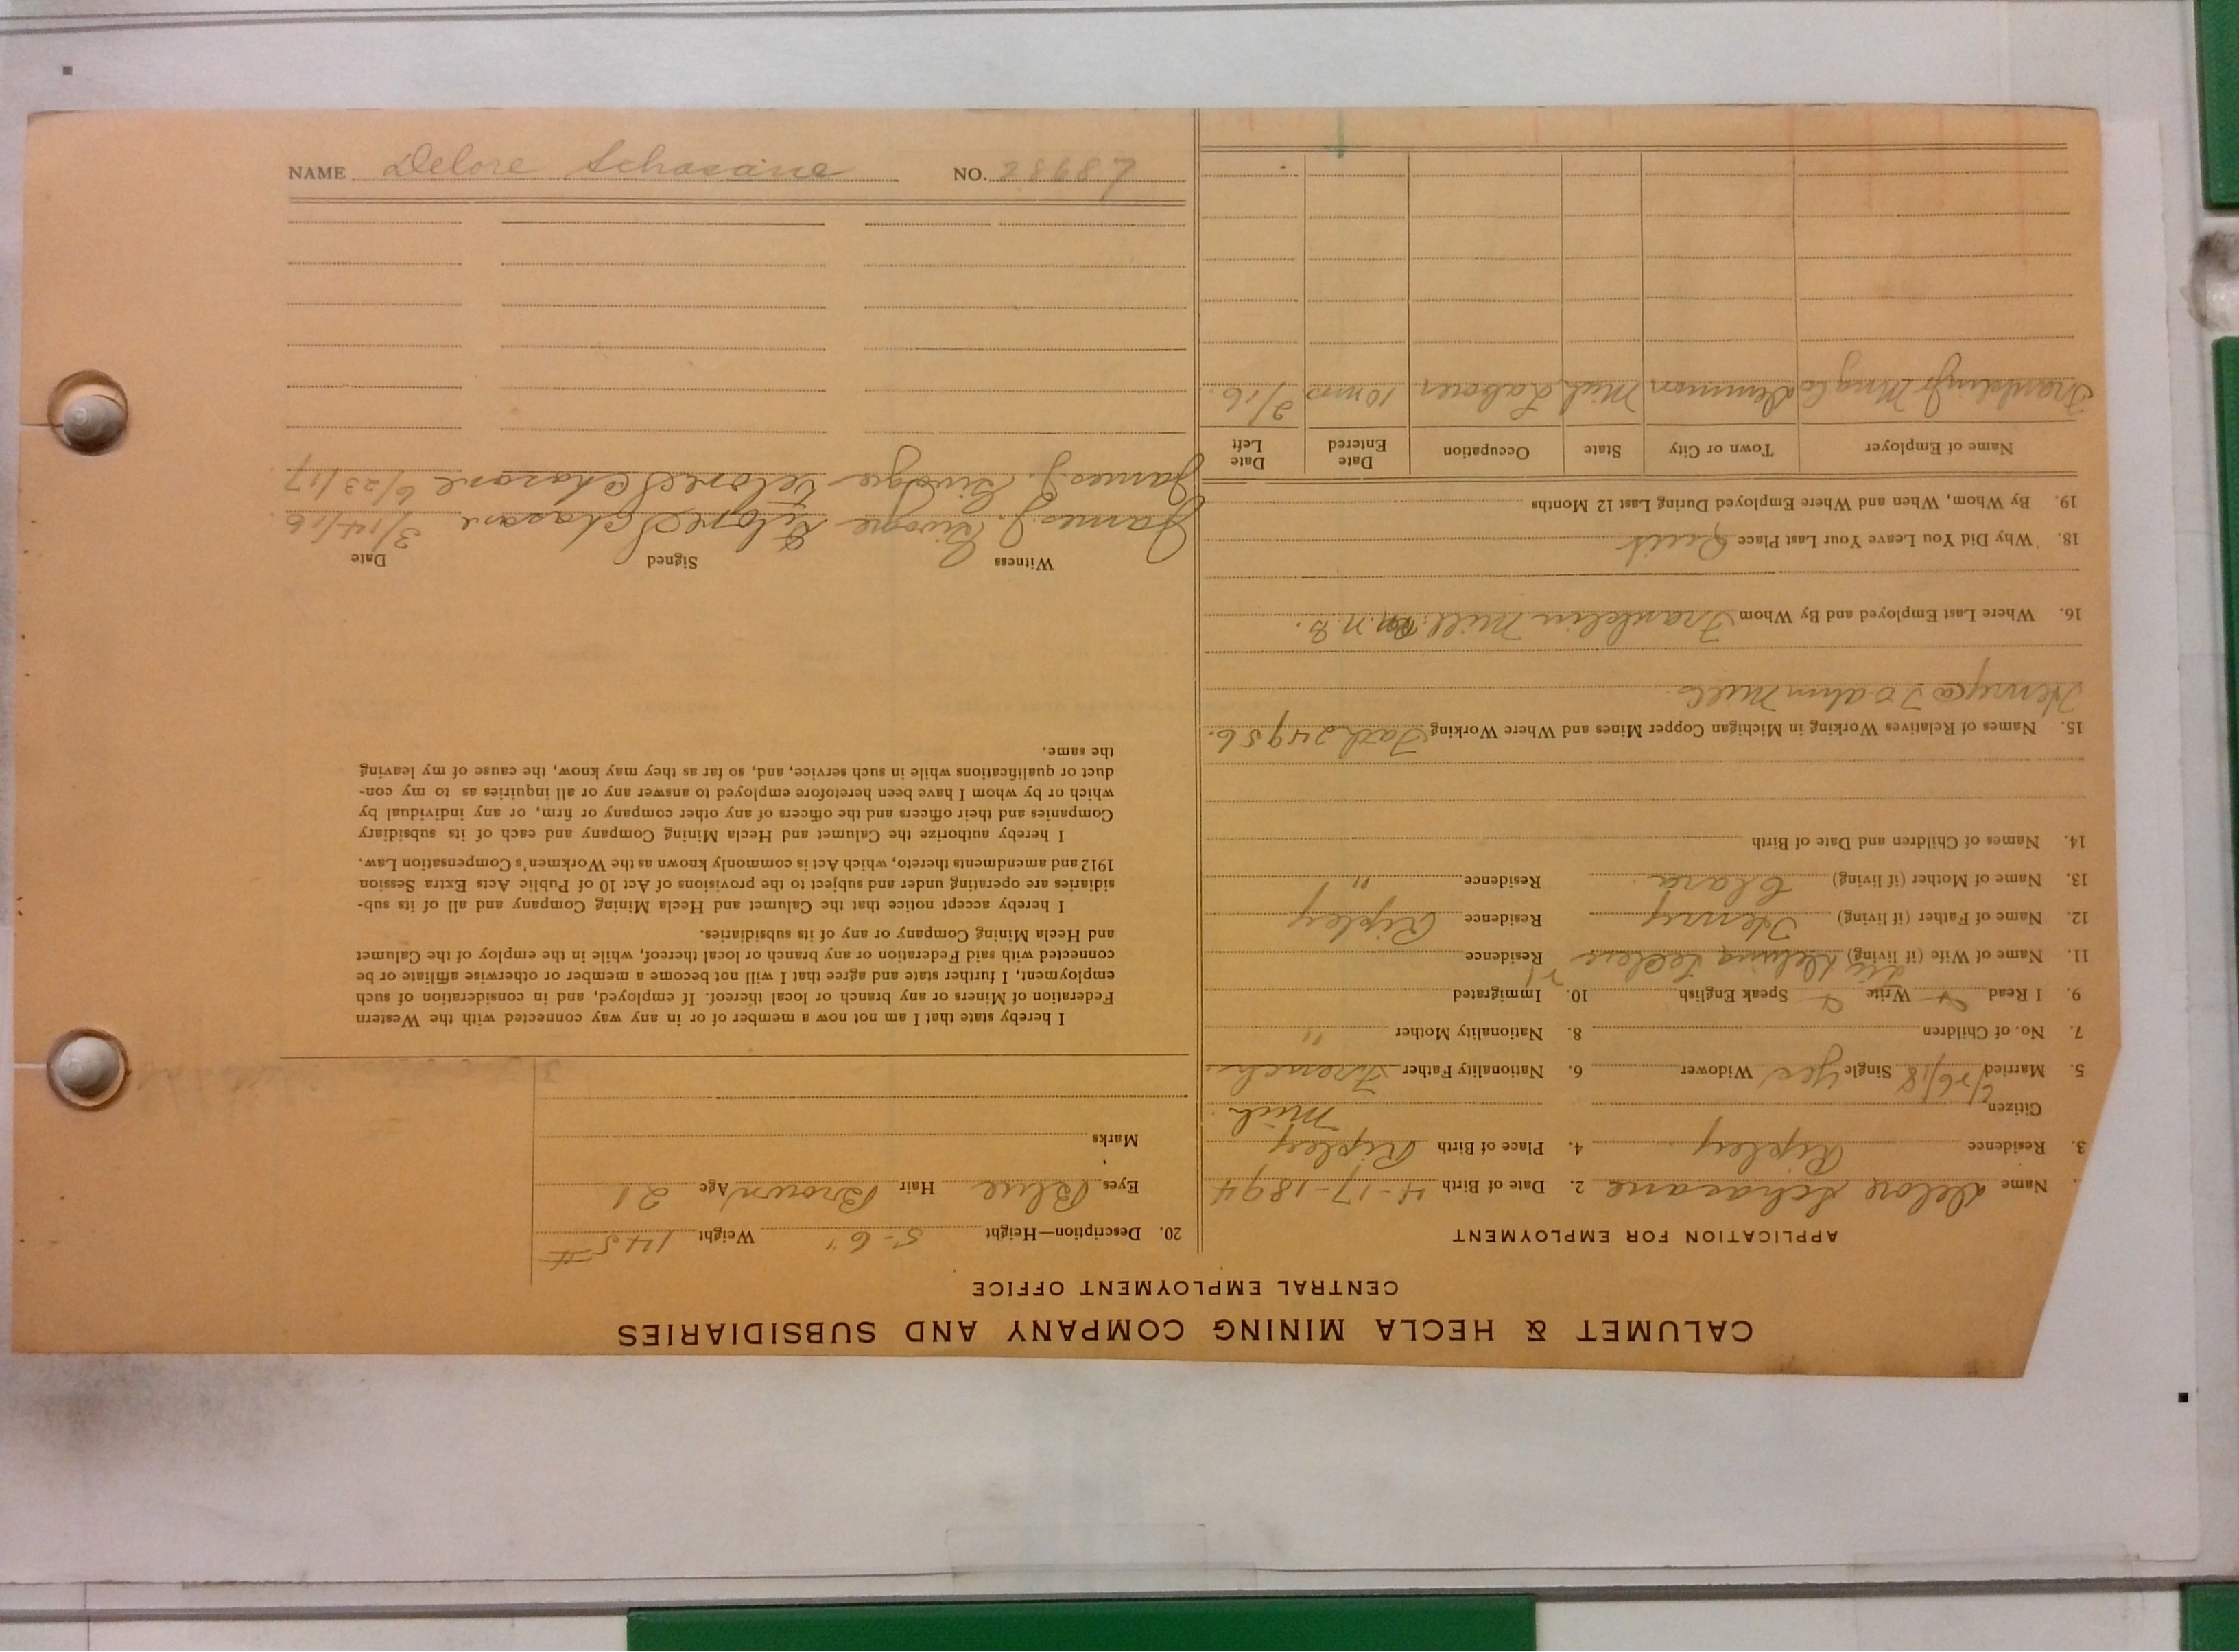 CALUMET & HECLA MINING COMPANY AND SUBSIDIARIES
CENTRAL EMPLOYMENT OFFICE
APPLICATION FOR EMPLOYMENT
Name Delore Schasane 2. Date of Birth 4-17-1894
3. Residence Ripley 4. Place of Birth Ripley
Citizen Mich
5. Married 6/26/18 Single Yes Widower 6. Nationality Father French
7. No. of Children 8. Nationality Mother "
9. I Read Write Speak English 10. Immigrated
11. Name of Wife (if living) Residence
12. Name of Father (if living) Henry Residence Ripley
13. Name of Mother (if living) Clara Residence "
14. Names of Children and Date of Birth
15. Names of Relatives Working in Michigan Copper Mines and Where Working Fath 24956.
Henry @ Mill.
16. Where Last Employed and By Whom Franklin Mill.
18. Why Did You Leave Your Last Place Quit
19. By Whom, When and Where Employed During Last 12 Months
Name of Employer Town or City State Occupation Date Entered Date Left
Franklin Mich Laborer 10 mos 2/16.
20. Description—Height 5-6" Weight 145#
Eyes Blue Hair Brown Age 21
Marks
I hereby state that I am not now a member of or in any way connected with the Western
Federation of Miners or any branch or local thereof. If employed, and in consideration of such
employment, I further state and agree that I will not become a member or otherwise affiliate or be
connected with said Federation or any branch or local thereof, while in the employ of the Calumet
and Hecla Mining Company or any of its subsidiaries.
I hereby accept notice that the Calumet and Hecla Mining Company and all of its sub-
sidiaries are operating under and subject to the provisions of Act 10 of Public Acts Extra Session
1912 and amendments thereto, which Act is commonly known as the Workmen's Compensation Law.
I hereby authorize the Calumet and Hecla Mining Company and each of its subsidiary
Companies and their officers and the officers of any other company or firm, or any individual by
which or by whom I have been heretofore employed to answer any or all inquiries as to my con-
duct or qualifications while in such service, and, so far as they may know, the cause of my leaving
the same.
Witness Signed Date
James J. Delore Schasane 3/14/16
James J. Delore Schasane 6/23/17
NAME Delore Schasane NO. 28687